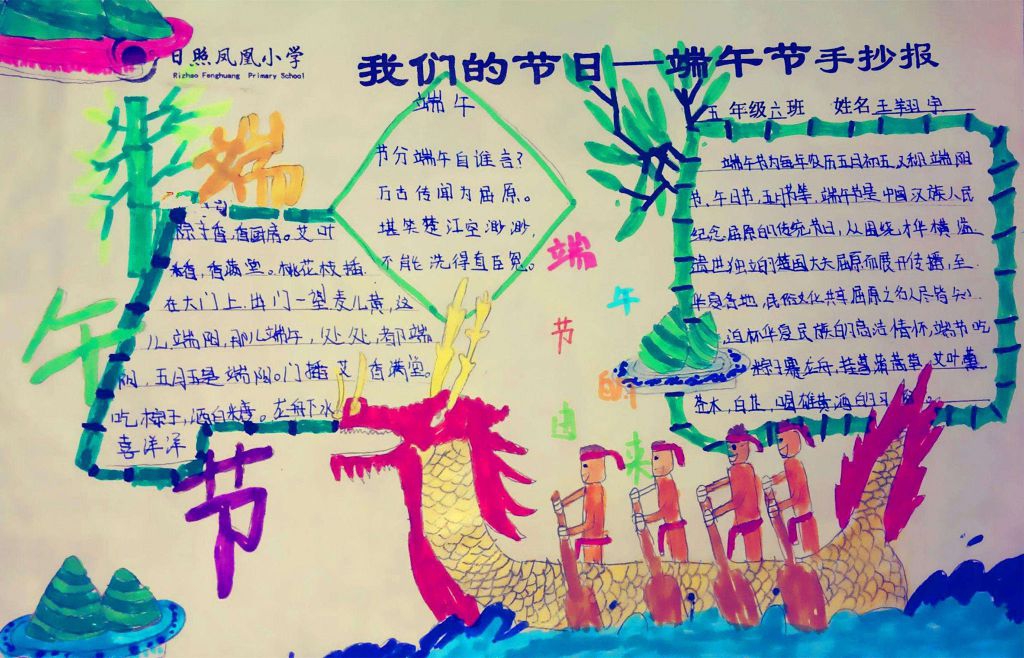 日照凤凰小学
Rizhao Fenghuang Primary School
我们的节日—端午节手抄报
五年级六班 姓名王翔宇
端
午
节
端午
节分端午自谁言?
万古传闻为屈原。
堪笑楚江空渺渺,
不能洗得直臣冤。
粽子香,香厨房。艾叶
香,香满堂。桃花枝插
在大门上,出门一望麦儿黄,这
儿端阳,那儿端午,处处,都端
阳,五月五是端阳。门插艾香满堂。
吃粽子,洒白糖。龙舟下水
喜洋洋
端午节的由来
端午节为每年农历五月初五,又称端阳
节、午日节,五月节等,端午节是中国汉族人民
纪念屈原的传统节日,从围绕才华横溢
遗世独立的楚国大夫屈原而展开传播,至
华夏各地,民俗文化共享屈原之名人尽皆知
追怀华夏民族的高洁情怀,端节吃
粽子赛龙舟,挂菖蒲蒿草,艾叶薰
苍术,白芷,喝雄黄酒的习